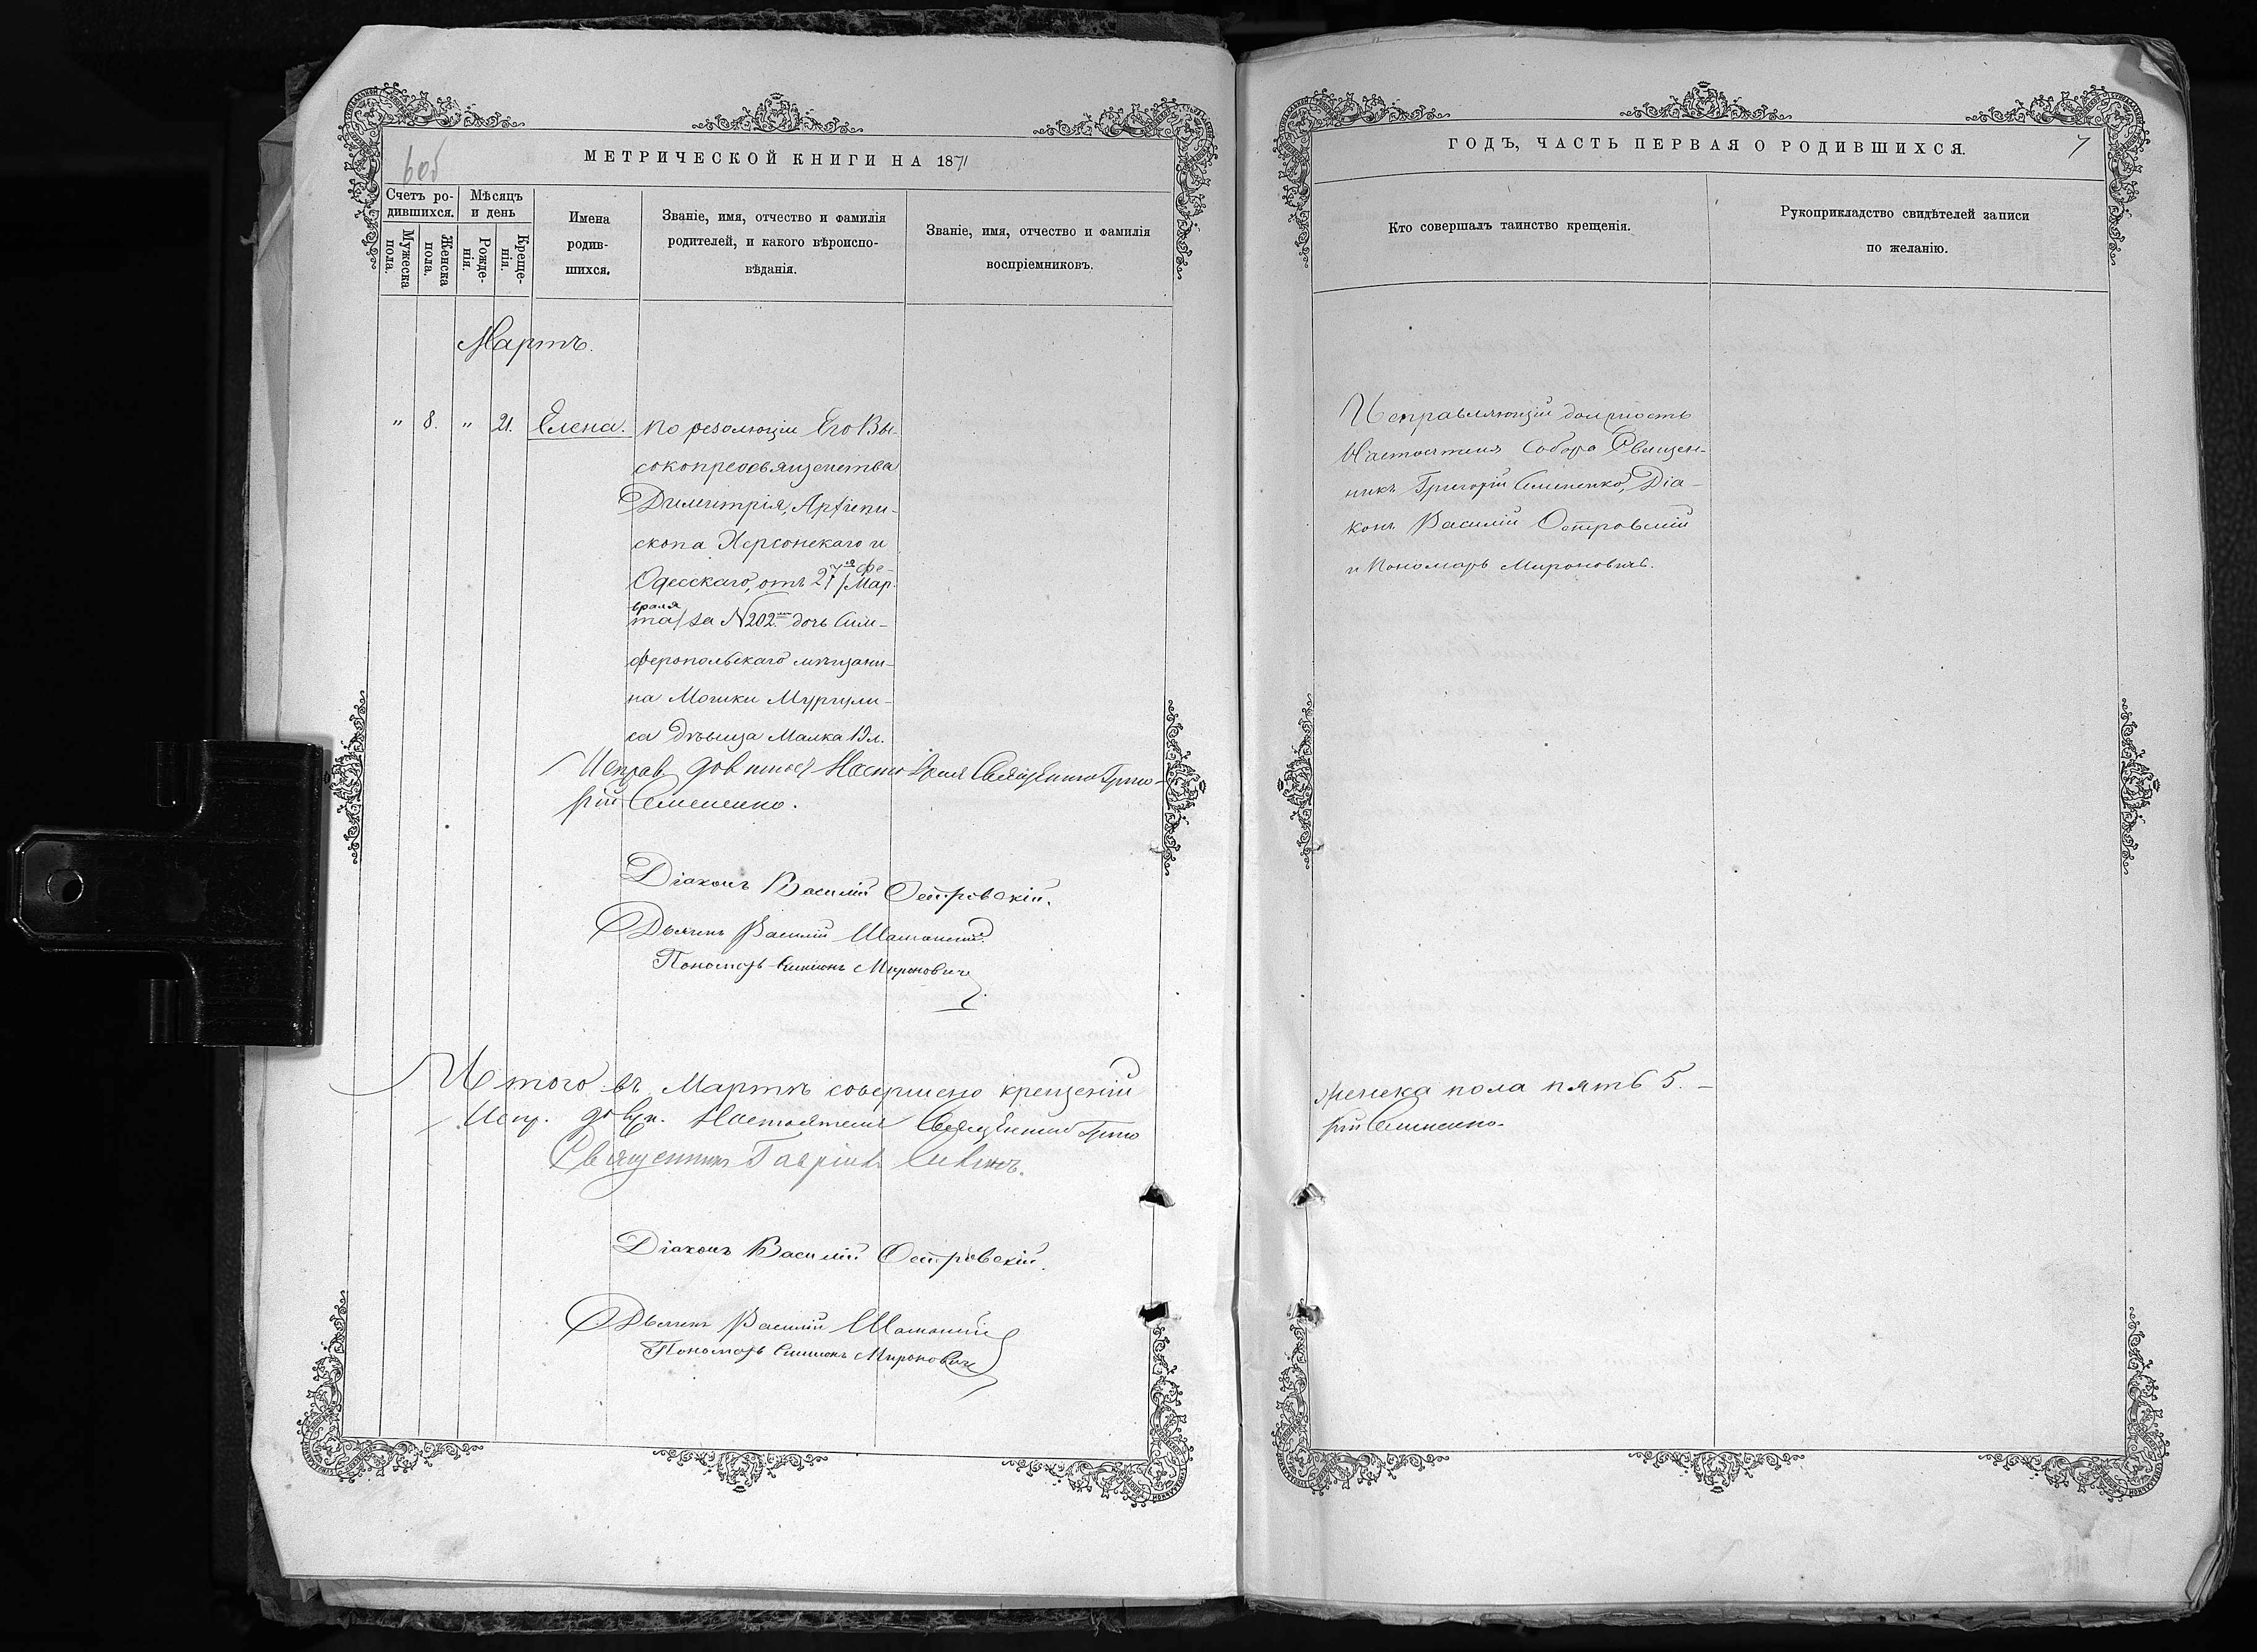 6об
МЕТРИЧЕСКОЙ КНИГИ НА 1871
Счетъ ро-
дившихся.
Мѣсяцъ
и день
Мужеска
пола.
Женска
пола.
Рожде-
нія.
Креще-
нія.
Имена
родив-
шихся.
Званіе, имя, отчество и фамилія
родителей, и какого вѣроиспо-
вѣданія.
Званіе, имя, отчество и фамилія
воспріемниковъ.
Мартъ.
" 8. " 21. Елена. По резолюціи Его Вы-
сокопреосвященства
Димитрія, Архіепи-
скопа Херсонскаго и
Одесскаго, отъ 27го Фе-
враля
/Мар-
та/ за N 202м дочь Сим-
феропольскаго мѣщани-
на Мошки
са дѣвица Малка 19 л.
Исправ. Настоятеля Священникъ Григо-
рій Семененко.
Діаконъ Василій Островскій.
Дьячекъ Василій
Пономарь Симеонъ Мироновичъ
Итого въ Мартѣ совершено крещеній
Испр. Настоятеля Священникъ Григо
Священникъ Гавріилъ
Діаконъ Василій Островскій.
Дьячекъ Василій
Пономарь Симеонъ Мироновичъ
ГОДЪ, ЧАСТЬ ПЕРВАЯ О РОДИВШИХСЯ.
7
Кто совершалъ таинство крещенія.
Рукоприкладство свидѣтелей записи
по желанію.
Исправляющій должность
Настоятеля Собора Священ-
никъ Григорій Семененко, Діа-
конъ Василій Островскій
и Пономарь Мироновичъ.
женска пола пять 5. -
рій Семененко.